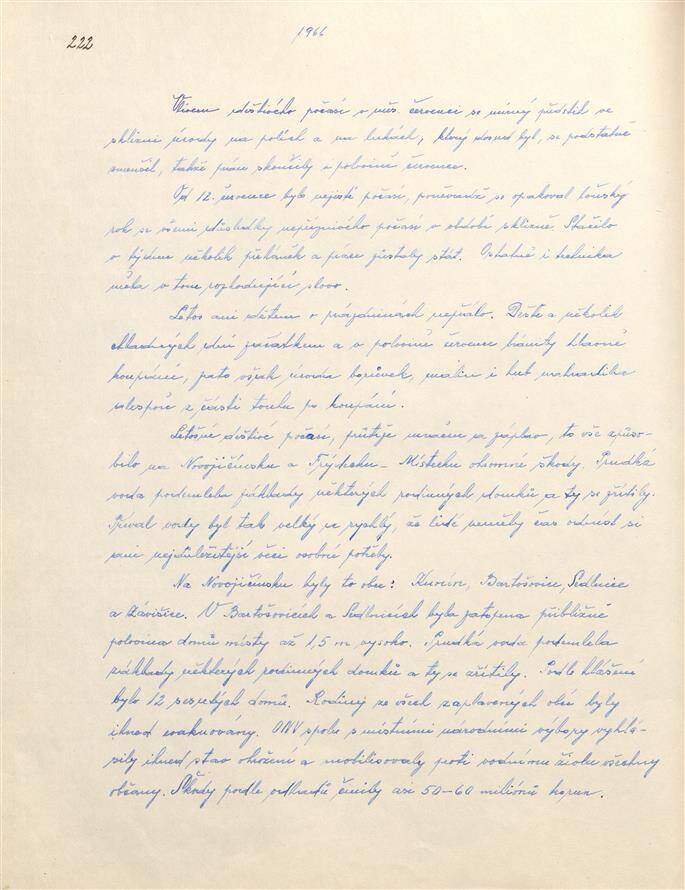 222
1966
Vlivem deštivého počasí v měs. červenci se mírný předstih ve
sklizni úrody na polích a na lukách, který dosud byl, se podstatně
zmenšil, takže práce skončily v polovině července.
Od 12. července bylo nejisté počasí, poněvadž se opakoval loňský
rok se všemi důsledky nepříznivého počasí v období sklizně. Stačilo
v týdnu několik přeháněk a práce zůstaly stát. Ostatně i technika
měla v tom rozhodující slovo.
Letos ani dětem o prázdninách nepřálo. Deště a několik
chladných dní začátkem a v polovině července bránily hlavně
koupání, zato však úroda borůvek, malin i hub nahradila
alespoň z části touhu po koupání.
Letošní deštivé počasí, průtrže mračen a záplav, to vše způso-
bilo na Novojičínsku a Frýdecku-Místecku ohromné škody. Prudká
voda podemlela základy některých rodinných domků a ty se zřítily.
Příval vody byl tak velký a rychlý, že lidé neměli čas odnést si
ani nejdůležitější věci osobní potřeby.
Na Novojičínsku byly to obce: Kunín, Bartošovice, Sedlnice
a Závišice. V Bartošovicích a Sedlnicích byla zatopena přibližně
polovina domů místy až 1,5 m vysoko. Prudká voda podemlela
základy některých rodinných domků a ty se zřítily. Podle hlášení
bylo 12 sesutých domů. Rodiny ze všech zaplavených obcí byly
ihned evakuovány. ONV spolu s místními národními výbory vyhlá-
sily ihned stav ohrožení a mobilisovaly proti vodnímu živlu všechny
občany. Škody podle odhadů činily asi 50-60 miliónů korun.